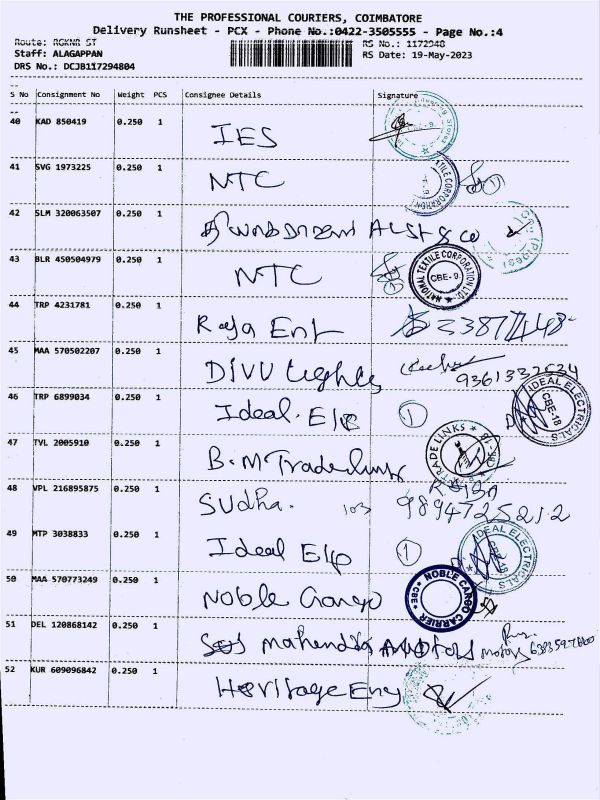 THE PROFESSIONAL COURIERS, COIMBATORE
Delivery Runsheet - PCX - Phone No.:0422-3505555 - Page No.:4
Route: RGKNR ST RS No.: 1172948
Staff: ALAGAPPAN RS Date: 19-May-2023
DRS No.: DCJB117294804
S No Consignment No Weight PCS Consignee Details Signature
40 KAD 850419 0.250 1 IES
41 SVG 1973225 0.250 1 NTC
42 SLM 320063507 0.250 1 & co
43 BLR 450504979 0.250 1 NTC NATIONAL TEXTILE CORPORATION LTD. CBE-9.
44 TRP 4231781 0.250 1 Raja Ent
45 MAA 570502207 0.250 1 Divu Lights
46 TRP 6899034 0.250 1 Ideal. Ele 1 IDEAL ELECTRICALS CBE-18
47 TVL 2005910 0.250 1 B.M Tradelinks TRADE LINKS
48 VPL 216895875 0.250 1 Sudha. 103 9894725212
49 MTP 3038833 0.250 1 Ideal Ele 1 IDEAL ELECTRICALS CBE-18
50 MAA 570773249 0.250 1 Noble Cargo NOBLE CARGO CARRIER CBE
51 DEL 120868142 0.250 1 Mahendra motors
52 KUR 609096842 0.250 1 Heritage Eng